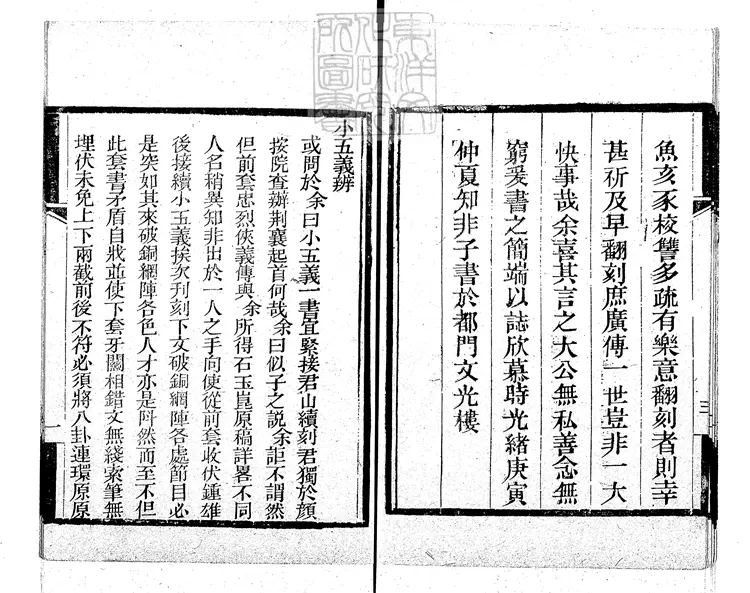 魚亥豕校讐多疏有樂意翻刻者則幸
甚祈及早翻刻庶廣傳一世豈非一大
快事哉余喜其言之大公無私善念無
窮爰書之簡端以誌欣慕時光緒庚寅
仲夏知非子書於都門文光樓
三
小五義辨
或問於余曰小五義一書宜緊接君山續刻君獨於顏
按院查辦荆襄起首何哉余曰似子之說余詎不謂然
但前套忠烈俠義傳與余所得石玉崑原稿詳畧不同
人名稍異知非出於一人之手向使從前套收伏鍾雄
後接續小五義挨次刋刻下文破銅網陣各處節目必
是突如其來破銅網陣各色人才亦是陡然而至不但
此套書矛盾自戕並使下套牙關相錯文無綫索筆無
埋伏未免上下兩截前後不符必須將八卦連環原原
一
東洋文
化研究
所圖書